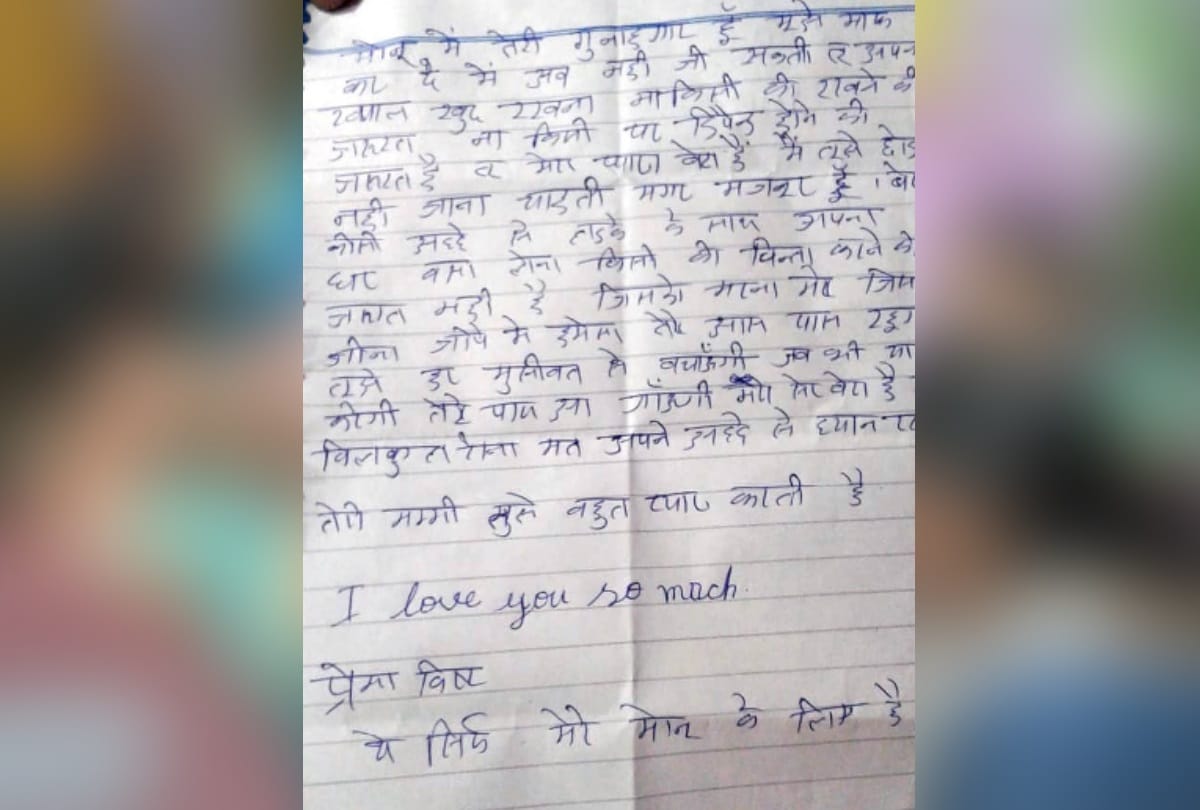 मोनू में तेरी गुनाहगार हूँ मुझे माफ
कर दे में अब नही जी सकती तू
ख्याल खुद रखना ना किसी को रखने की
जरूरत ना किसी पर डिपैंड होने की
जरूरत है तू मेरा प्यारा बेटा हैं मैं तुझे छोड
नही जाना चाहती मगर मजबूर हूँ ।
कीसी अच्छे से लडके के साथ अपना
घर बसा लेना किसी की चिन्ता करने की
जरूरत नही है जिसको मरना मरे
जीना जीये मे हमेसा तेरे आस पास
तुझे हर मुसीबत से बचाऊँगी जब भी
करेगी तेरे पास आ जाऊँगी बेटा है
बिलकुल रोना मत अपने अच्छे से ध्यान
तेरी मम्मी तुझे बहुत प्यार करती है
I love you so mach.
प्रेमा विष्ट
ये सिर्फ मेरे मोनू के लिए है